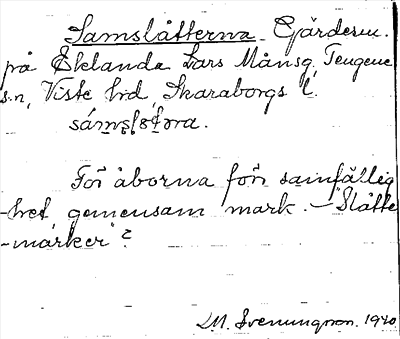 Samslåtterna. Gärdesm.
på Eklanda Lars Månsg, Tengene
s.n, Viste hrd, Skaraborgs l.
För åborna för samfällig-
-het gemensam mark. - "Slåtte
-marker"?
L.M. Svenungsson. 1940.